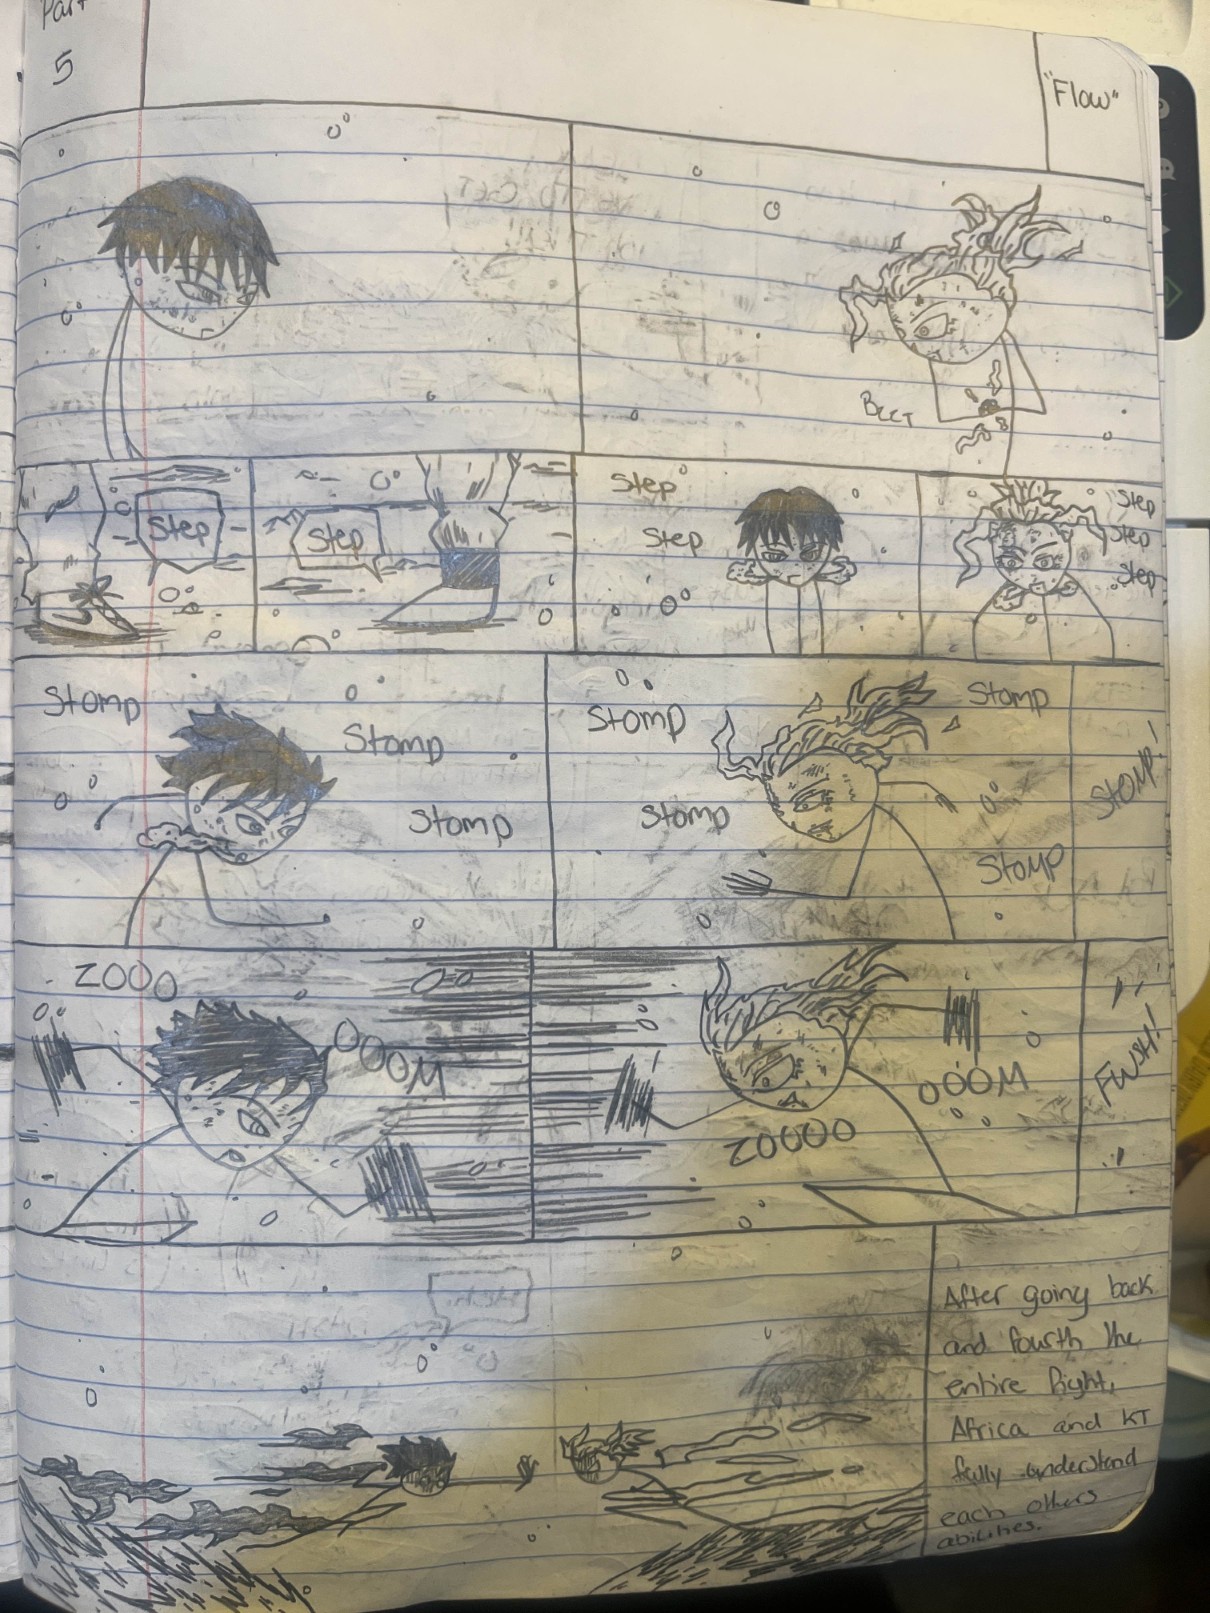 Part
5
"Flow"
Step
Step
Step
Step
Step
Step
Step
Stomp
Stomp
Stomp
Stomp
Stomp
Stomp
Stomp
STOMP!
ZOOO
OOOM
ZOOOO
OOOM
FWSH!
After going back
and fourth the
entire fight,
Africa and KT
fully understand
each others
abilities.